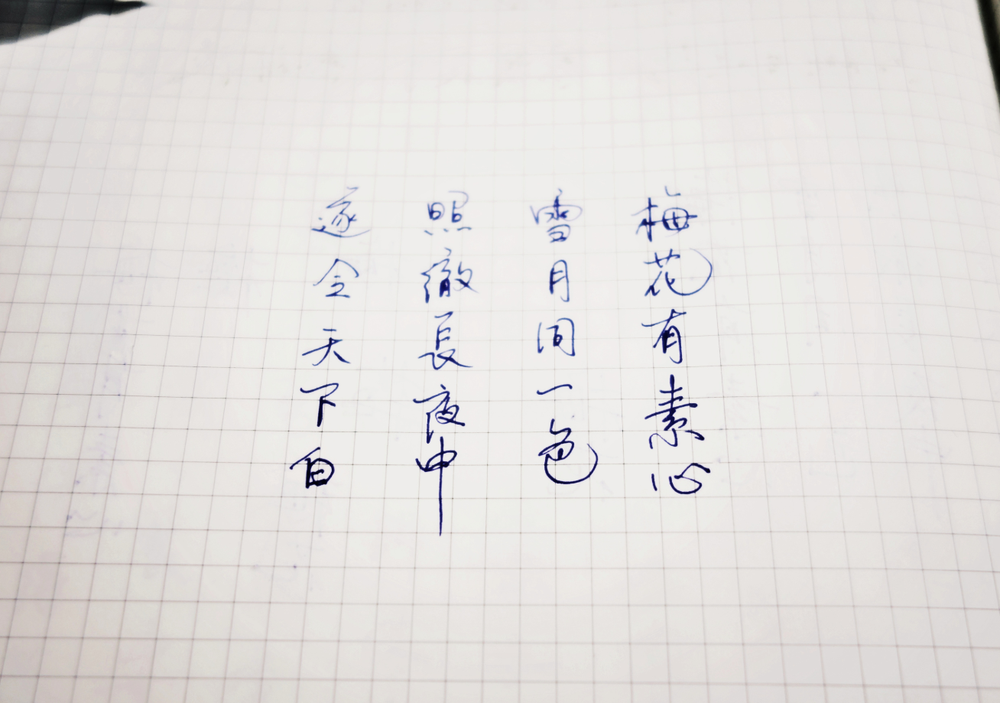 梅花有素心
雪月同一色
照徹長夜中
遂令天下白